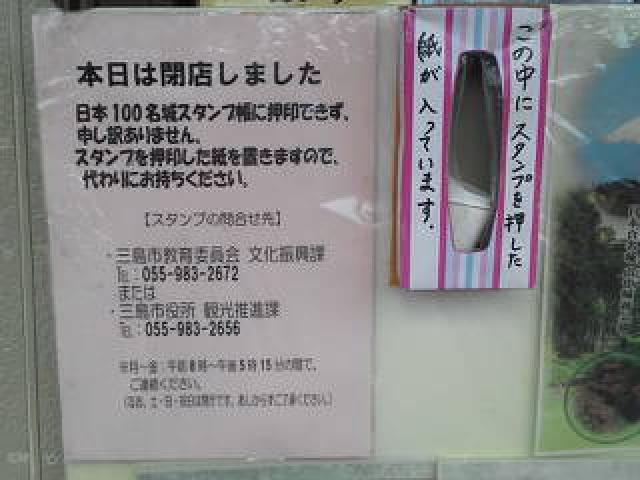 本日は閉店しました
日本100名城スタンプ帳に押印できず、
申し訳ありません。
スタンプを押印した紙を置きますので、
代わりにお持ちください。
【スタンプの問合せ先】
・三島市教育委員会 文化振興課
℡:055-983-2672
または
・三島市役所 観光推進課
℡:055-983-2656
※月~金:午前8時~午後5時15分の間で、
ご連絡ください。
(なお、土・日・祝日は閉庁です。あしからずご了承ください。)
この中に スタンプを押した
紙が 入っています。